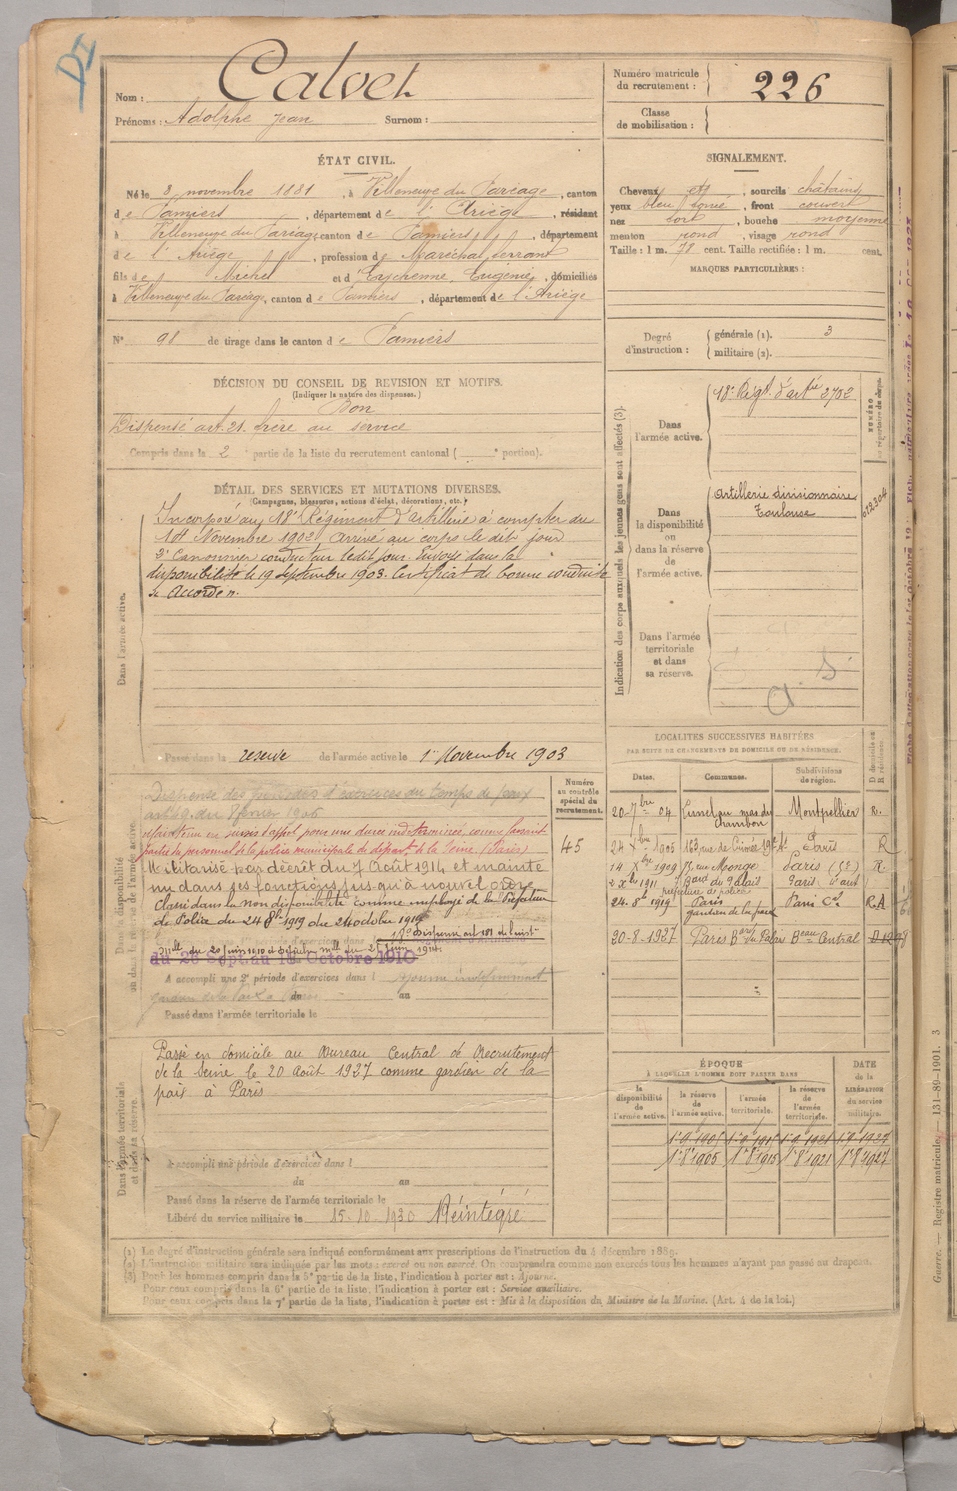 Nom : Calvet
Prénoms : Adolphe Jean Surnom :
Numéro matricule du recrutement : 226
Classe de mobilisation :
ÉTAT CIVIL.
Né le 3 novembre 1881, à Villeneuve du Paréage, canton
de Pamiers, département de l'Ariège, résidant
à Villeneuve du Paréage, canton de Pamiers, département
de l'Ariège, profession de Maréchal ferrant
fils de Michel et d'Eychenne Eugénie, domiciliés
à Villeneuve du Paréage, canton de Pamiers, département de l'Ariège
N° 98 de tirage dans le canton de Pamiers
SIGNALEMENT.
Cheveux et, sourcils châtains
yeux bleu, front couvert
nez fort, bouche moyenne
menton rond, visage rond
Taille : 1 m. 78 cent. Taille rectifiée : 1 m. cent.
MARQUES PARTICULIÈRES :
Degré d'instruction : générale (1). 3
militaire (2).
DÉCISION DU CONSEIL DE REVISION ET MOTIFS.
(Indiquer la nature des dispenses.)
Bon
Dispensé art. 21. frère au service
Compris dans la 2e partie de la liste du recrutement cantonal ( e portion).
DÉTAIL DES SERVICES ET MUTATIONS DIVERSES.
(Campagnes, blessures, actions d'éclat, décorations, etc.)
Dans l'armée active.
Incorporé au 18e Régiment d'artillerie à compter du
Novembre 1902, arrivé au corps le dit jour
2e Canonnier conducteur le dit jour. Envoyé dans la
disponibilité le 19 Septembre 1903. Certificat de bonne conduite
Accordé.
Passé dans la réserve de l'armée active le 1er Novembre 1903
Indication des corps auxquels les jeunes gens sont affectés (3).
Dans l'armée active.
18e Régt d'artie 2702
NUMÉRO au répertoire du corps.
Dans la disponibilité ou dans la réserve de l'armée active.
Artillerie divisionnaire
Toulouse
Dans l'armée territoriale et dans sa réserve.
Dans la disponibilité ou dans la réserve de l'armée active.
Numéro au contrôle spécial du recrutement.
45
Dispensé des périodes d'exercices du temps de paix
pour une durée indéterminée, comme faisant
partie du personnel de la police municipale du départ. de la Seine. (Paris)
Militarisé par décret du 7 Août 1914 et mainte
nu dans ses fonctions jusqu'à nouvel ordre
Classé dans la non disponibilité comme employé de la Préfecture
de Police du 24 8bre 1919 du 24 octobre 1919
du 26 Sept. au 12 Octobre 1910
A accompli une 2e période d'exercices dans l
du au
Passé dans l'armée territoriale le
LOCALITÉS SUCCESSIVES HABITÉES
PAR SUITE DE CHANGEMENTS DE DOMICILE OU DE RÉSIDENCE.
Dates. Communes. Subdivisions de région. D domicile ou R résidence.
20-7bre 04 Lunel au mas du chambon Montpellier R.
24 Xbre 1906 163 rue de Crimée 19e At Paris R
14 Xbre 1909 rue Monge Paris (5e) R.
2 Xbre 1911 Bard du Palais Paris
préfecture de police
24. 8bre 1919 Paris gardien de la paix Paris Cal R.A
20-8-1927 Paris Bard du Palais Beau Central D 1927
Dans l'armée territoriale et dans sa réserve.
Passé en domicile au Bureau Central de Recrutement
de la Seine le 20 Août 1927 comme gardien de la
paix à Paris
A accompli une période d'exercices dans l
du au
Passé dans la réserve de l'armée territoriale le
Libéré du service militaire le 15-10-1930 Réintégré
ÉPOQUE À LAQUELLE L'HOMME DOIT PASSER DANS
la disponibilité de l'armée active. la réserve de l'armée active. l'armée territoriale. la réserve de l'armée territoriale. DATE de la LIBÉRATION du service militaire.
1er 8 1905 1er 8 1915 1er 8 1921 1er 8 1927
(1) Le degré d'instruction générale sera indiqué conformément aux prescriptions de l'instruction du 4 décembre 1889.
(2) L'instruction militaire sera indiquée par les mots : exercé ou non exercé. On comprendra comme non exercés tous les hommes n'ayant pas passé au drapeau.
(3) Pour les hommes compris dans la 5e partie de la liste, l'indication à porter est : Ajourné.
Pour ceux compris dans la 6e partie de la liste, l'indication à porter est : Service auxiliaire.
Pour ceux compris dans la 7e partie de la liste, l'indication à porter est : Mis à la disposition du Ministre de la Marine. (Art. 4 de la loi.)
Guerre. — Registre matricule. — 131-89-1901. 3